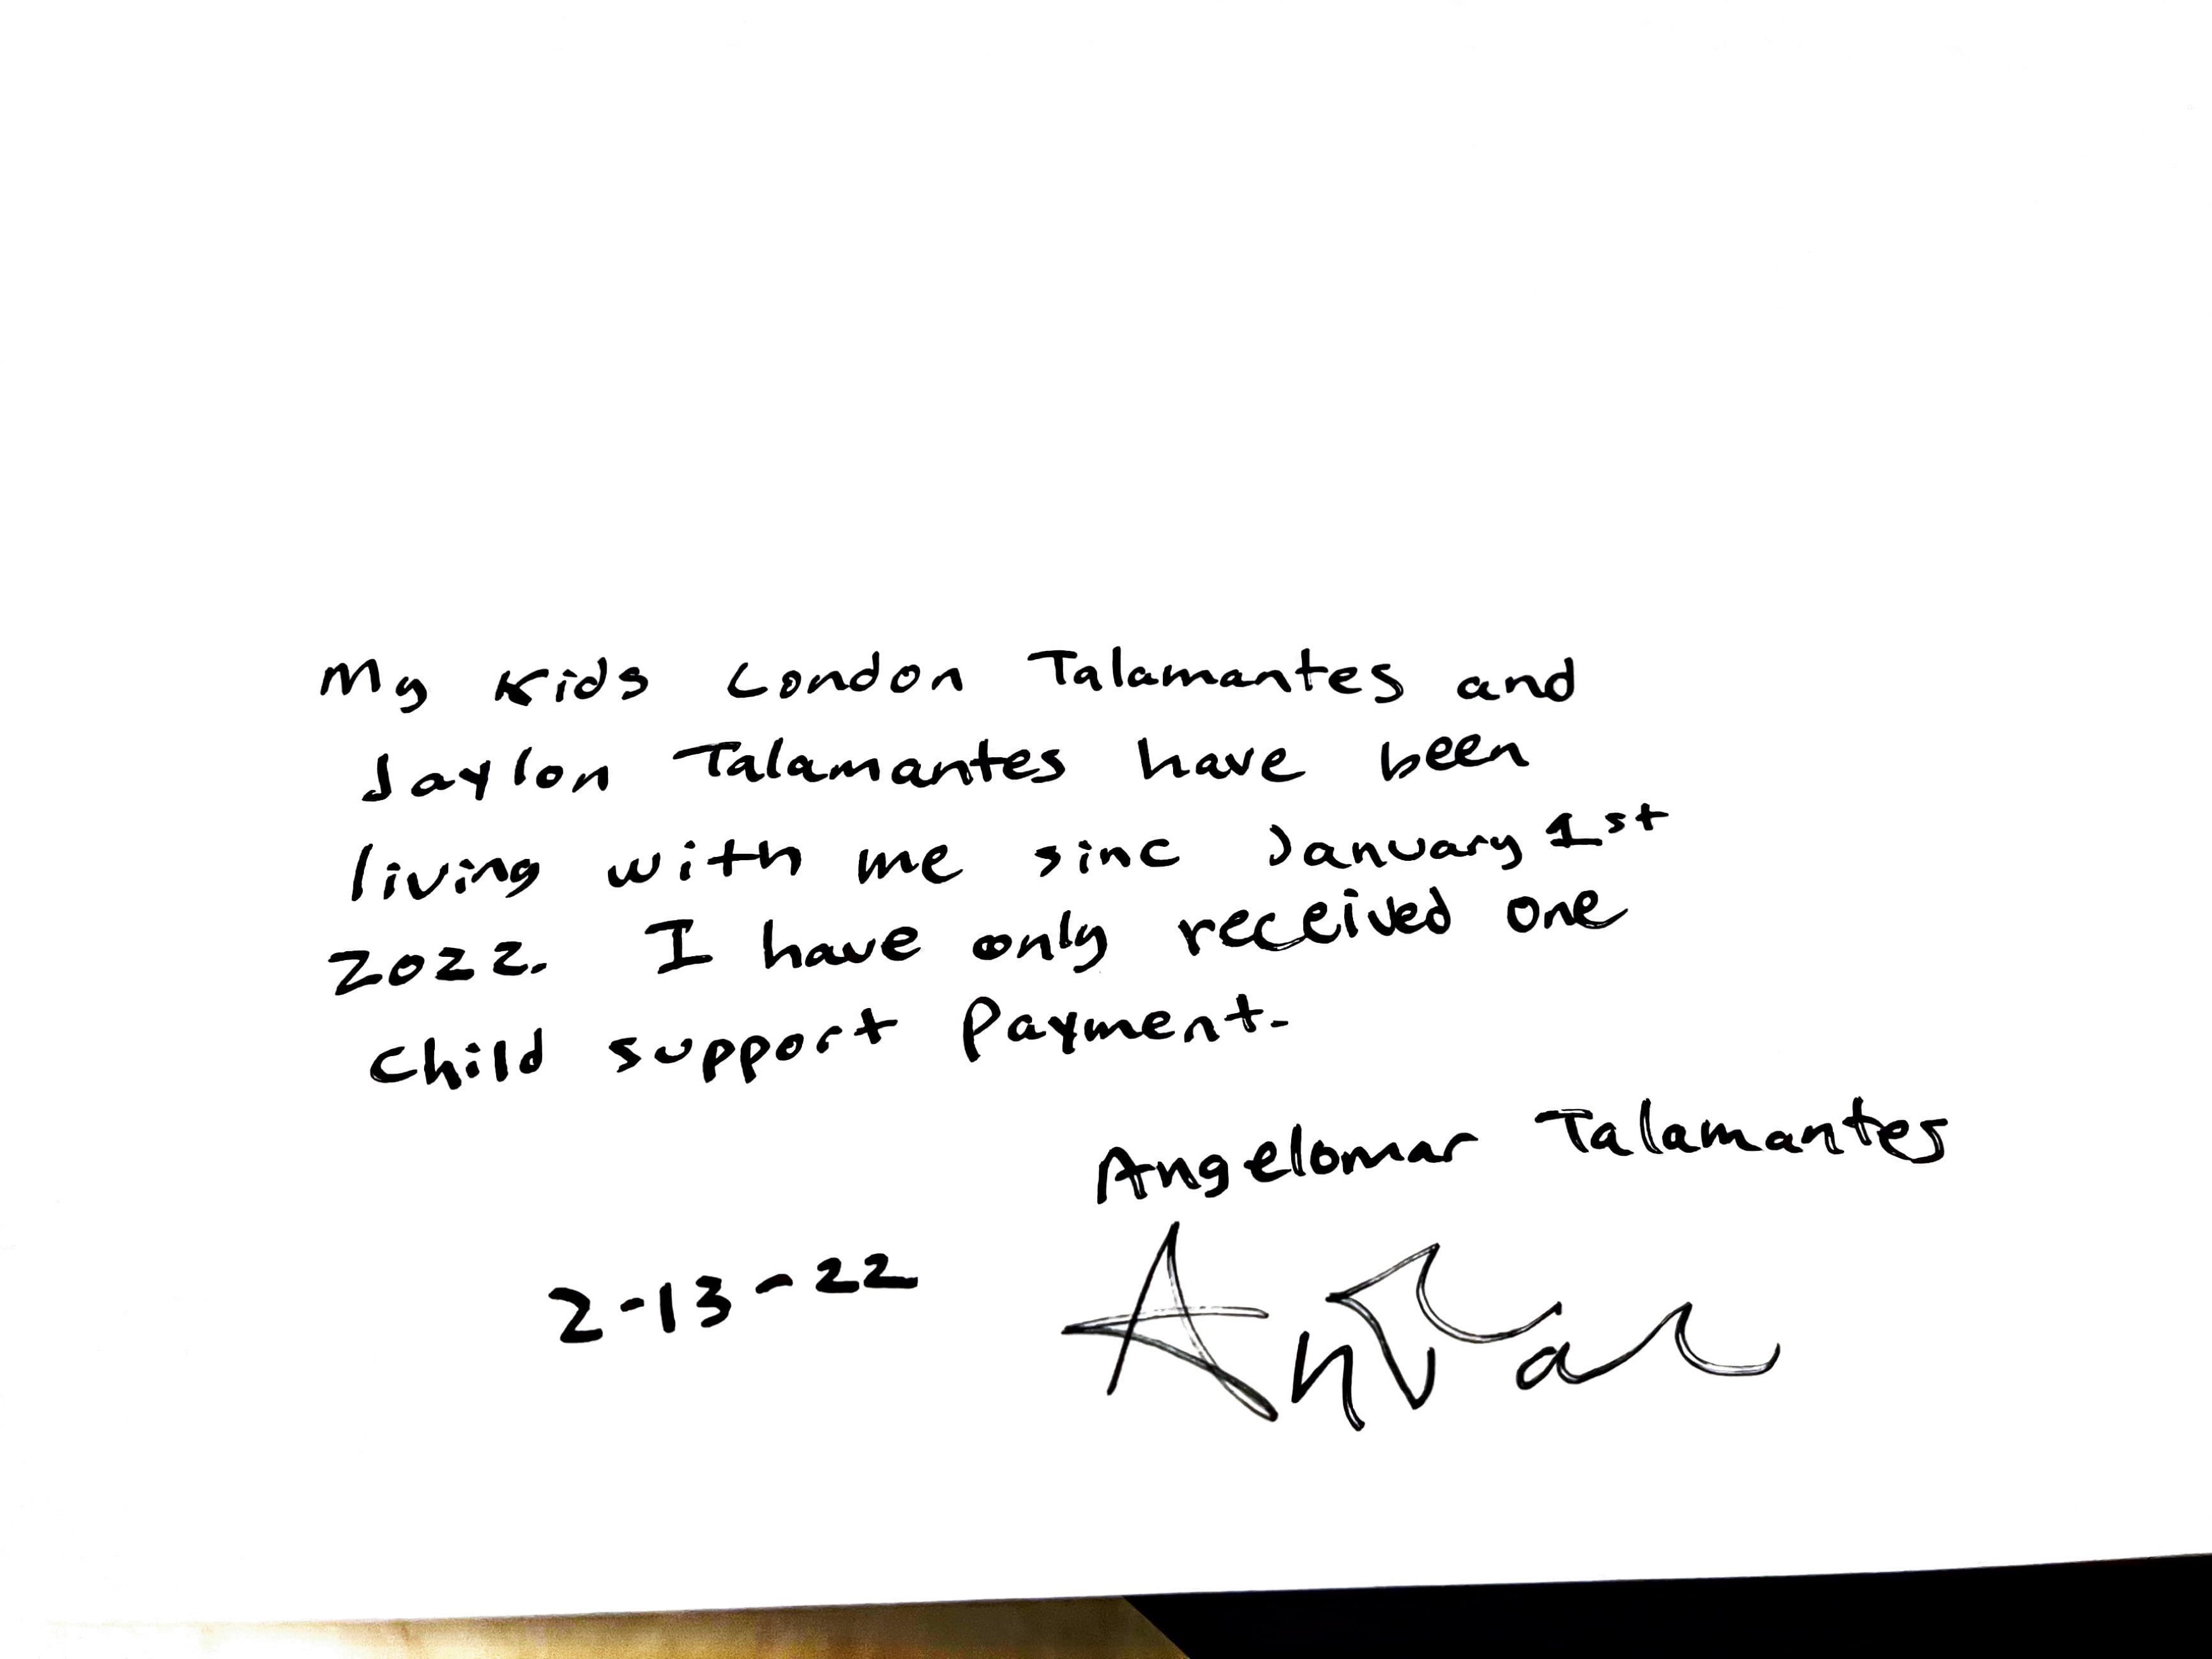 My Kids London Talamantes and
Jaylon Talamantes have been
living with me sinc January 1st
2022. I have only received one
Child support Payment.
Angelomar Talamantes
2-13-22